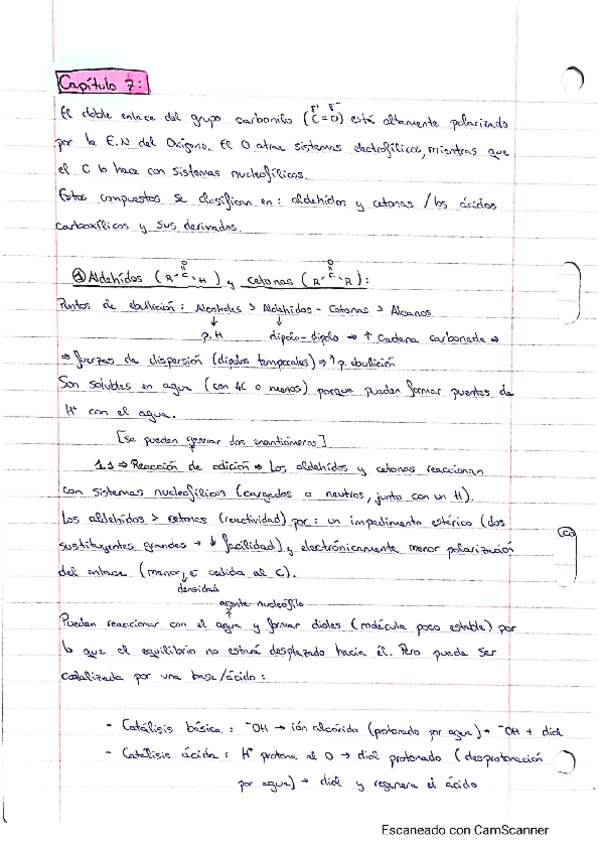 Capítulo 7:
El doble enlace del grupo carbonilo (C=O) está altamente polarizado
δ+ δ-
por la E.N del Oxígeno. El O atrae sistemas electrofílicos, mientras que
el C lo hace con sistemas nucleofílicos.
Estos compuestos se clasifican en: aldehídos y cetonas / los ácidos
carboxílicos y sus derivados.
① Aldehídos (R-C-H) y cetonas (R-C-R):
O O
Puntos de ebullición: Alcoholes > Aldehídos - Cetonas > Alcanos
↓ ↓
p.H dipolo-dipolo ⇒ ↑ Cadena carbonada ⇒
⇒ fuerzas de dispersión (dipolos temporales) ⇒ ↑ p. ebullición
Son solubles en agua (con 4C o menos) porque pueden formar puentes de
H+ con el agua.
[se pueden generar dos enantiómeros]
1.1 ⇒ Reacción de adición ⇒ Los aldehídos y cetonas reaccionan
con sistemas nucleofílicos (cargados o neutros, junto con un H).
Los aldehídos > cetonas (reactividad) por: un impedimento estérico (dos
sustituyentes grandes → ↓ facilidad) y electrónicamente menor polarización
del enlace (menor e- cedida al C).
densidad
agente nucleófilo
Pueden reaccionar con el agua y formar dioles (molécula poco estable) por
lo que el equilibrio no estará desplazado hacia él. Pero puede ser
catalizada por una base/ácido:
- Catálisis básica: -OH → ión alcóxido (protonado por agua) → -OH + diol
- Catálisis ácida: H+ protona al O → diol protonado (desprotonación
por agua) → diol y regenera el ácido
Escaneado con CamScanner